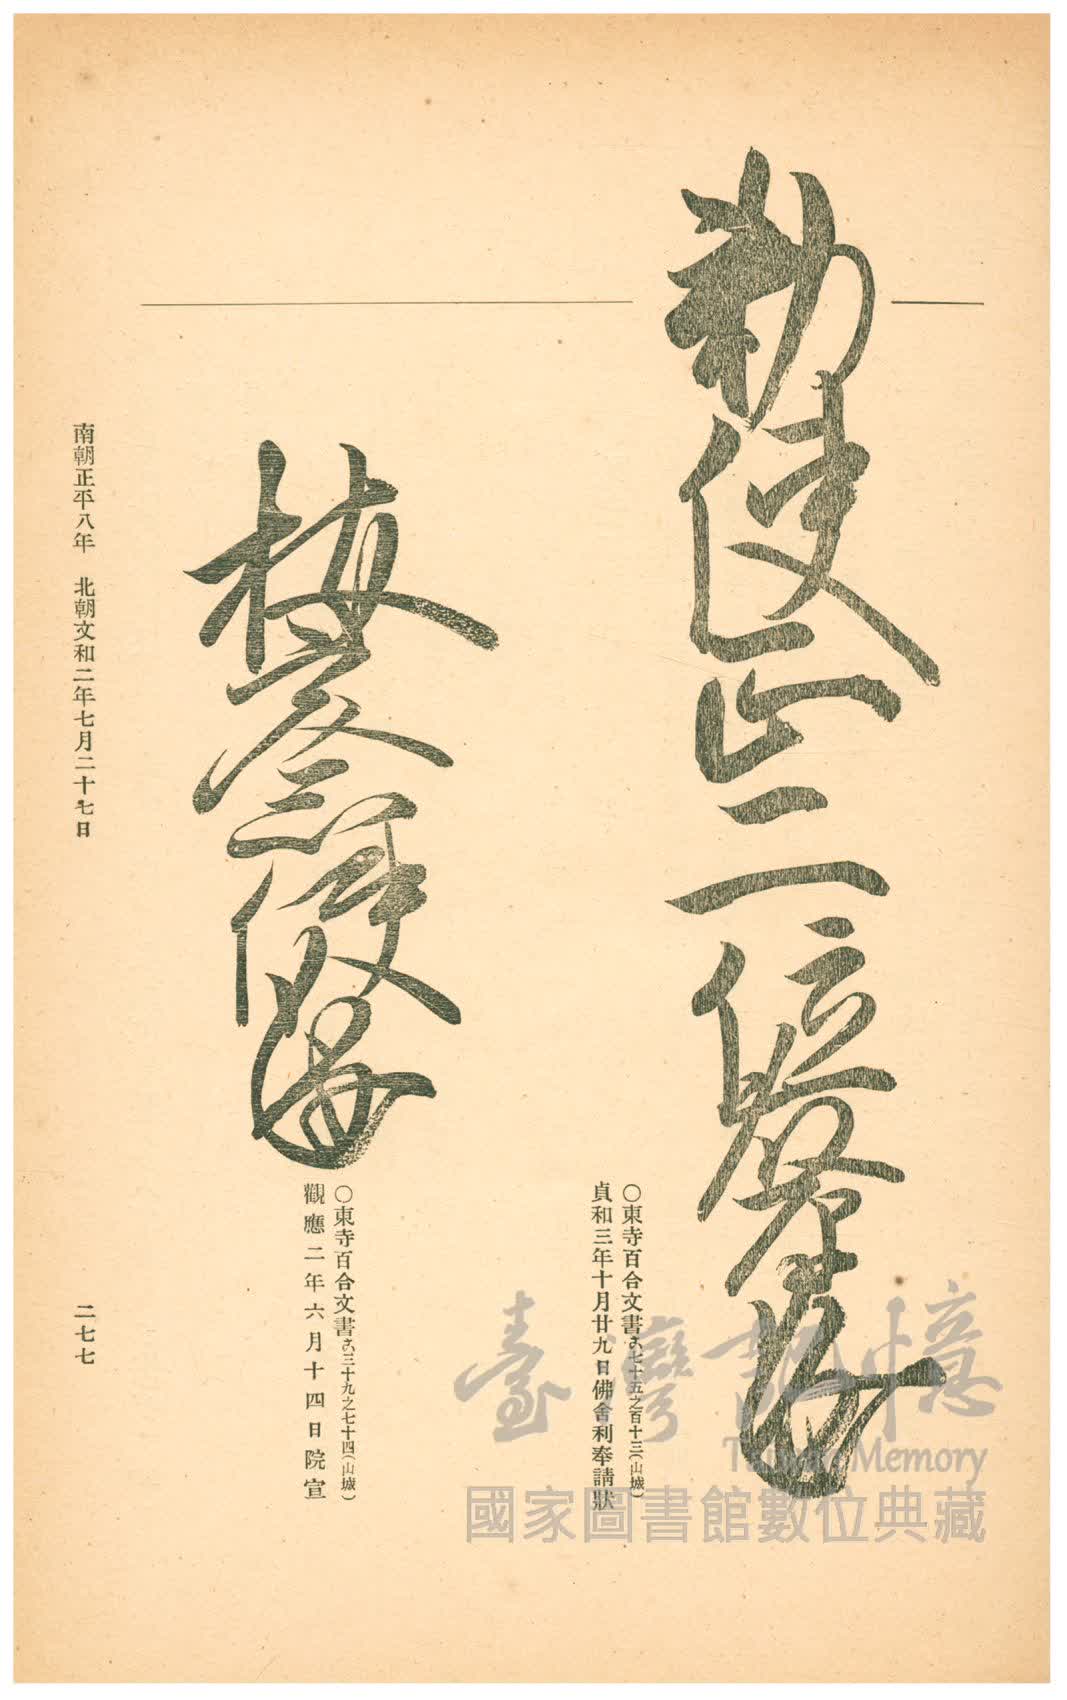 勅使正二位
〇東寺百合文書七十五之百十三(山城)
貞和三年十月廿九日佛舍利奉請狀
按察使
〇東寺百合文書三十九之七十四(山城)
觀應二年六月十四日院宣
南朝正平八年 北朝文和二年七月二十七日
二七七
臺灣記憶
Taiwan Memory
國家圖書館數位典藏